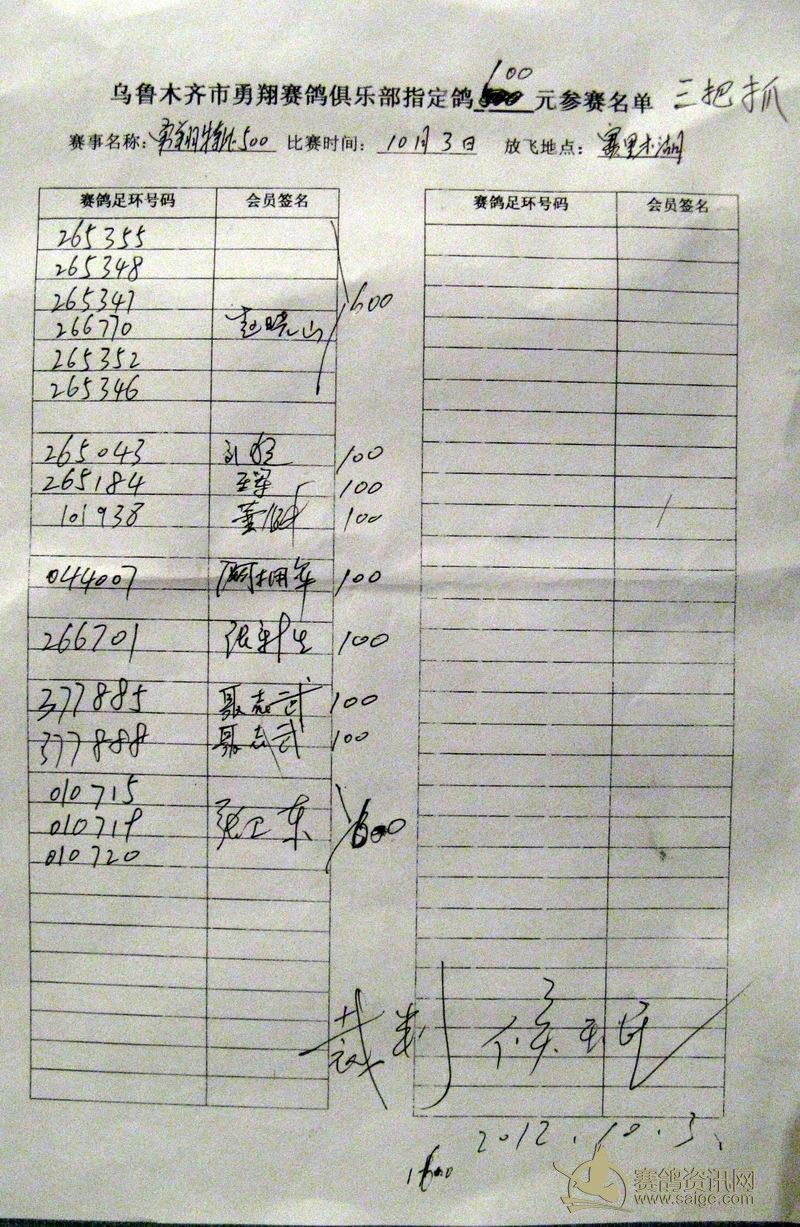 乌鲁木齐市勇翔赛鸽俱乐部指定鸽100元参赛名单 三把抓
赛事名称：勇翔特比500 比赛时间：10月3日 放飞地点：赛里木湖
赛鸽足环号码 会员签名 赛鸽足环号码 会员签名
265355
265348
265347 600
266770 赵晓山
265352
265346
265043 100
265184 100
101938 100
044007 100
266701 张新生 100
377885 聂志武 100
377888 聂志武 100
010715
010719 张卫东
010720
裁判 侯
2012.10.3.
1600
赛鸽资讯网
www.saige.com